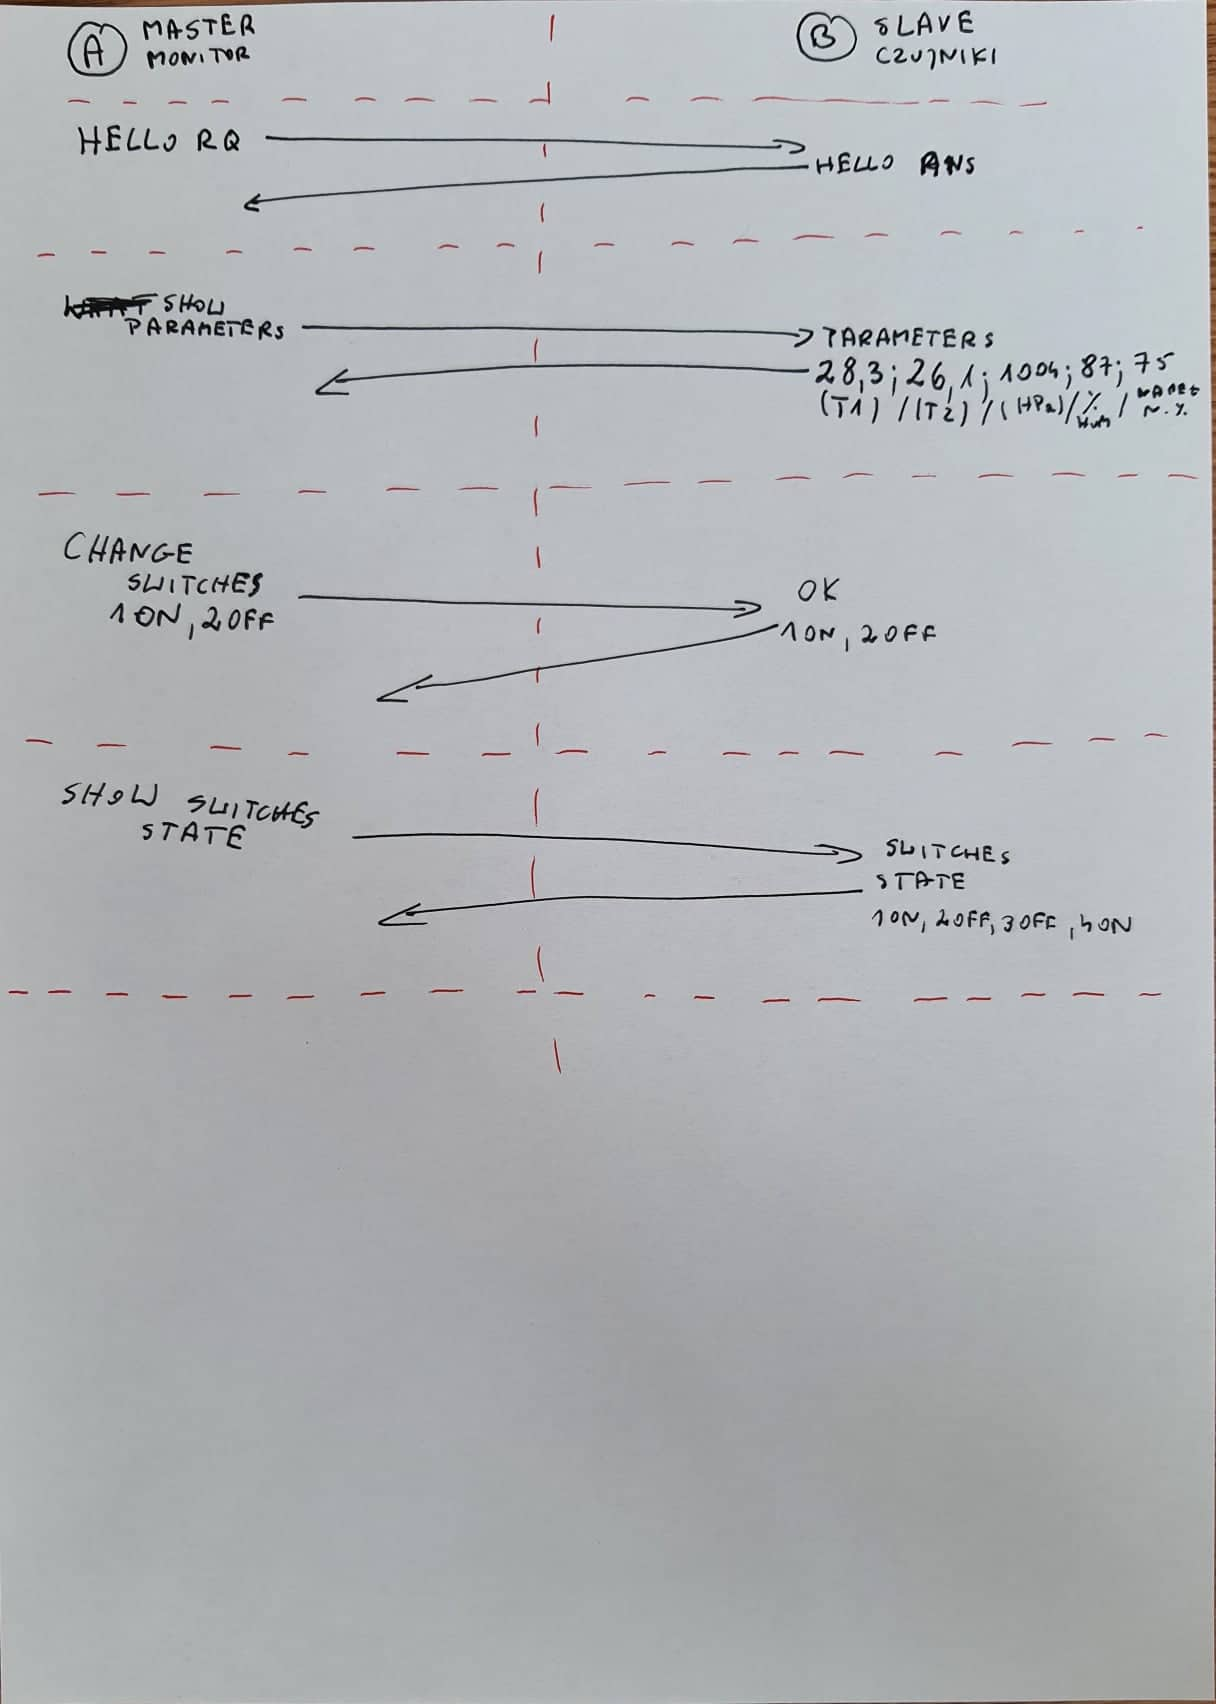 A MASTER
MONITOR
B SLAVE
CZUJNIKI
HELLO RQ
HELLO ANS
SHOW
PARAMETERS
PARAMETERS
28,3; 26,1; 1004; 87; 75
(T1) / (T2) / (HPa) / % /
HUM
N. %
CHANGE
SWITCHES
1 ON, 2 OFF
OK
1 ON, 2 OFF
SHOW SWITCHES
STATE
SWITCHES
STATE
1 ON, 2 OFF, 3 OFF, 4 ON